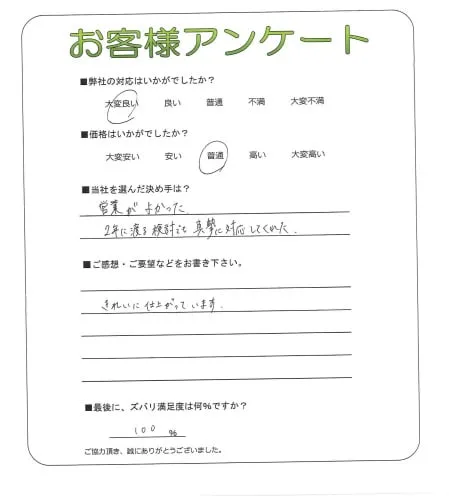 お客様アンケート
■弊社の対応はいかがでしたか？
大変良い 良い 普通 不満 大変不満
■価格はいかがでしたか？
大変安い 安い 普通 高い 大変高い
■当社を選んだ決め手は？
営業がよかった
2年に渡る検討も真摯に対応してくれた.
■ご感想・ご要望などをお書き下さい。
きれいに仕上がっています.
■最後に、ズバリ満足度は何％ですか？
100 ％
ご協力頂き、誠にありがとうございました。